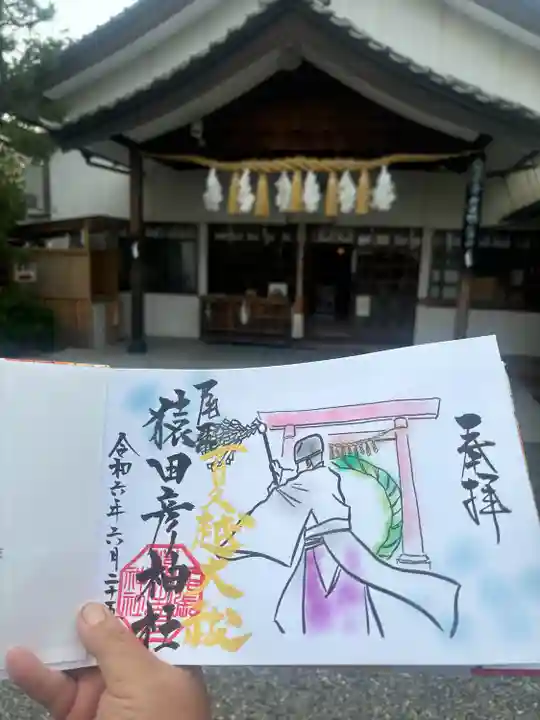 奉拝
夏越大祓
猿田彦神社
令和六年六月二十